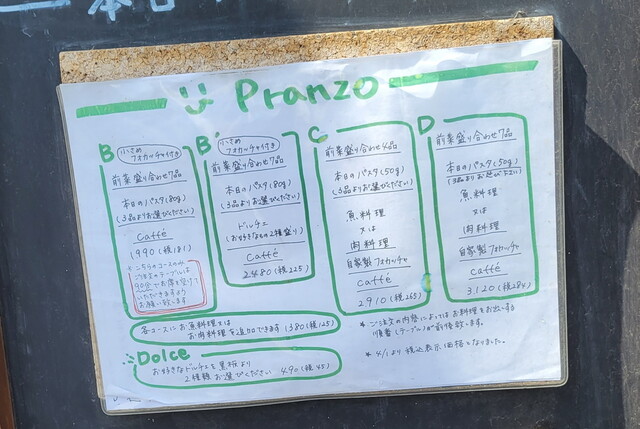 本日
Pranzo
B
小さめ
フォカッチャ付き
前菜盛り合わせ7品
本日のパスタ(80g)
(3品よりお選びください)
Caffé
1990(税181)
*こちらのコースのみ
ご注文のテーブルは
90分でお席を空けて
いただきますよう
お願い致します
B'
小さめ
フォカッチャ付き
前菜盛り合わせ7品
本日のパスタ(80g)
(3品よりお選びください)
ドルチェ
(お好きなもの2種盛り)
Caffé
2.480(税225)
C
前菜盛り合わせ4品
本日のパスタ(50g)
(3品よりお選びください)
魚料理
又は
肉料理
自家製フォカッチャ
caffé
2910(税265)
D
前菜盛り合わせ7品
本日のパスタ(50g)
(3品よりお選び下さい)
魚料理
又は
肉料理
自家製フォカッチャ
caffé
3,120(税284)
各コースにお魚料理又は
お肉料理を追加できます 1380(税125)
Dolce
お好きなドルチェを黒板より
2種類お選びください 490(税45)
*ご注文の内容によってはお料理をお出しする
順番(テーブル)が前後致します。
*4/1より税込表示価格になりました。